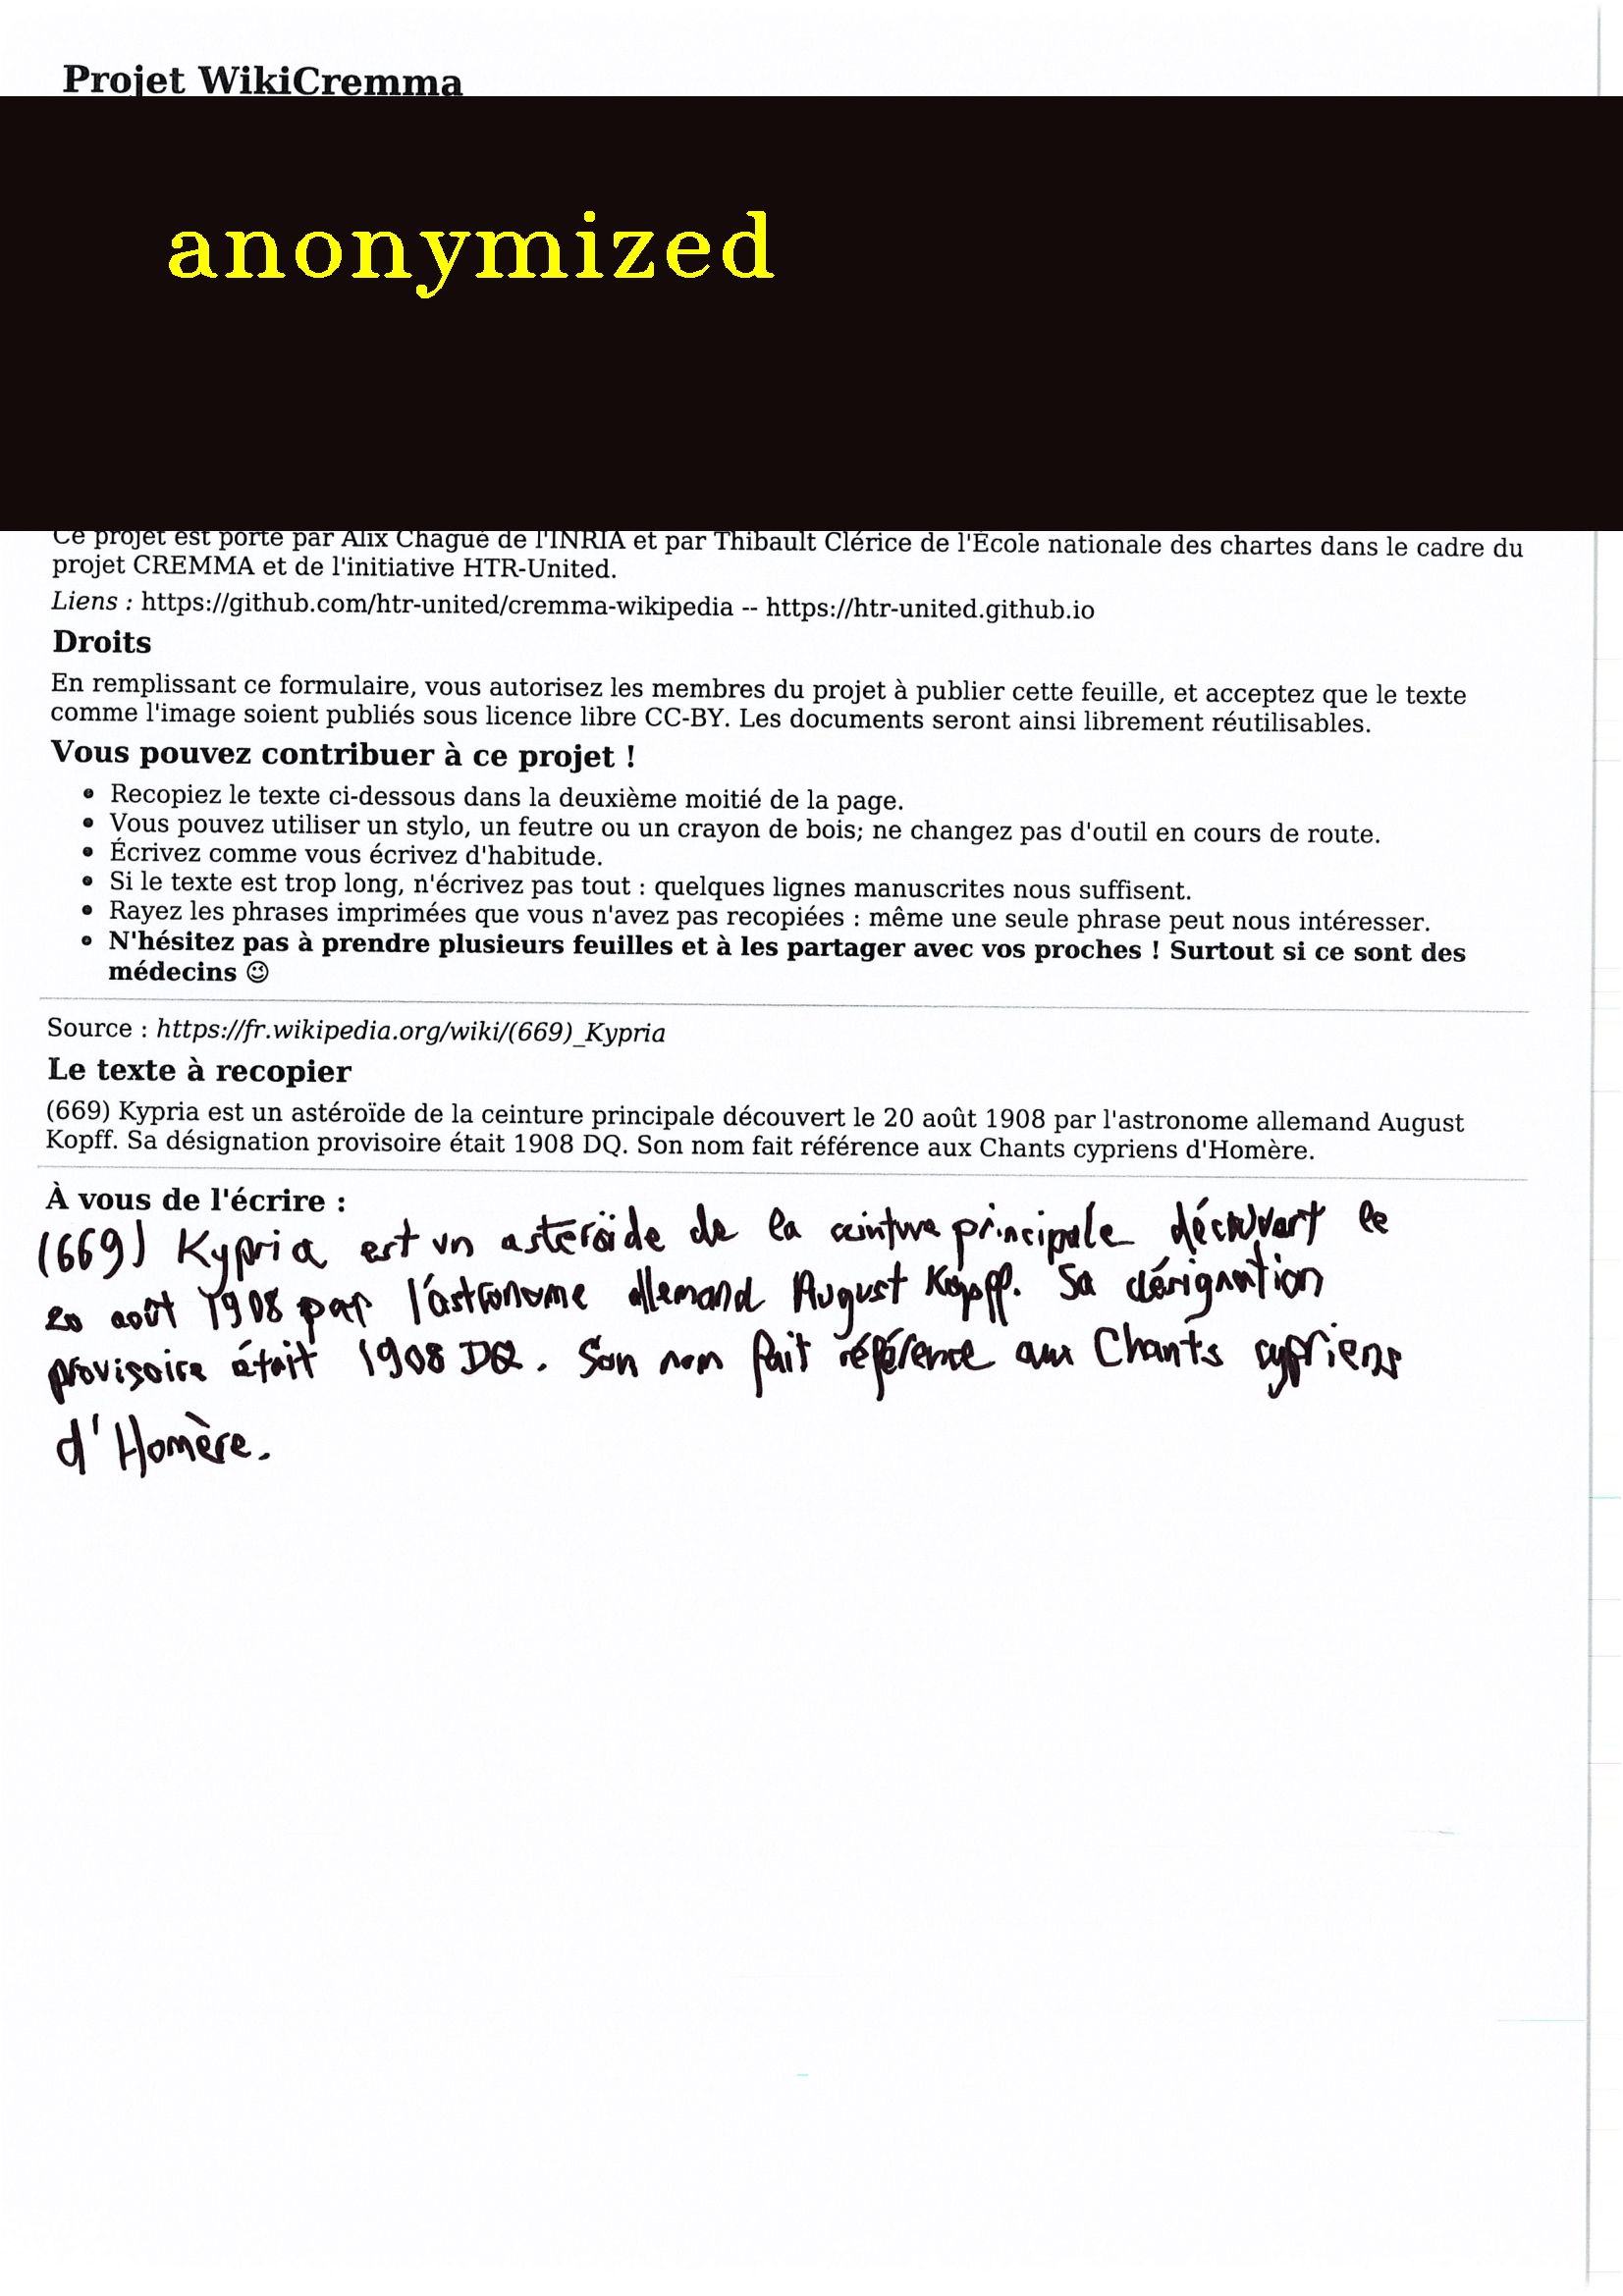 Projet WikiCremma
anonymized
Ce projet est porté par Alix Chagué de l'INRIA et par Thibault Clérice de l'École nationale des chartes dans le cadre du
projet CREMMA et de l'initiative HTR-United.
Liens : https://github.com/htr-united/cremma-wikipedia -- https://htr-united.github.io
Droits
En remplissant ce formulaire, vous autorisez les membres du projet à publier cette feuille, et acceptez que le texte
comme l'image soient publiés sous licence libre CC-BY. Les documents seront ainsi librement réutilisables.
Vous pouvez contribuer à ce projet !
• Recopiez le texte ci-dessous dans la deuxième moitié de la page.
• Vous pouvez utiliser un stylo, un feutre ou un crayon de bois; ne changez pas d'outil en cours de route.
• Écrivez comme vous écrivez d'habitude.
• Si le texte est trop long, n'écrivez pas tout : quelques lignes manuscrites nous suffisent.
• Rayez les phrases imprimées que vous n'avez pas recopiées : même une seule phrase peut nous intéresser.
• N'hésitez pas à prendre plusieurs feuilles et à les partager avec vos proches ! Surtout si ce sont des
médecins 😉
Source : https://fr.wikipedia.org/wiki/(669)_Kypria
Le texte à recopier
(669) Kypria est un astéroïde de la ceinture principale découvert le 20 août 1908 par l'astronome allemand August
Kopff. Sa désignation provisoire était 1908 DQ. Son nom fait référence aux Chants cypriens d'Homère.
À vous de l'écrire :
(669) Kypria est un astéroïde de la ceinture principale découvert le
20 août 1908 par l'astronome allemand August Kopff. Sa désignation
provisoire était 1908 DQ. Son nom fait référence aux Chants cypriens
d'Homère.